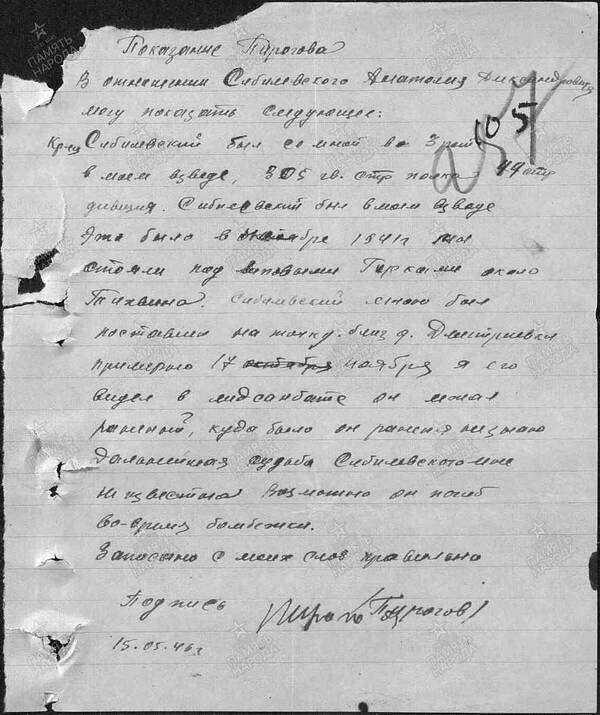 Показание Пирогова
В отношении Сибилевского Анатолия Александровича
могу показать следующее:
Сибилевский был со мной во 3 роте
в моем взводе, 305 гв. стр полка 44 стр
дивизия. Сибилевский был в моем взводе
Это было в ноябре 1941 г мы
стояли под Липовыми Горками около
Тихвина. Сибилевский мною был
поставлен на точку близ д. Дмитриевки
примерно 17 октября ноября я его
видел в медсанбате он лежал
раненый, куда было он ранен я не знаю
Дальнейшая судьба Сибилевского мне
не известна возможно он погиб
во-время бомбежки.
Записано с моих слов правильно
Подпись Пирогов
15.05.46 г
ПАМЯТЬ НАРОДА